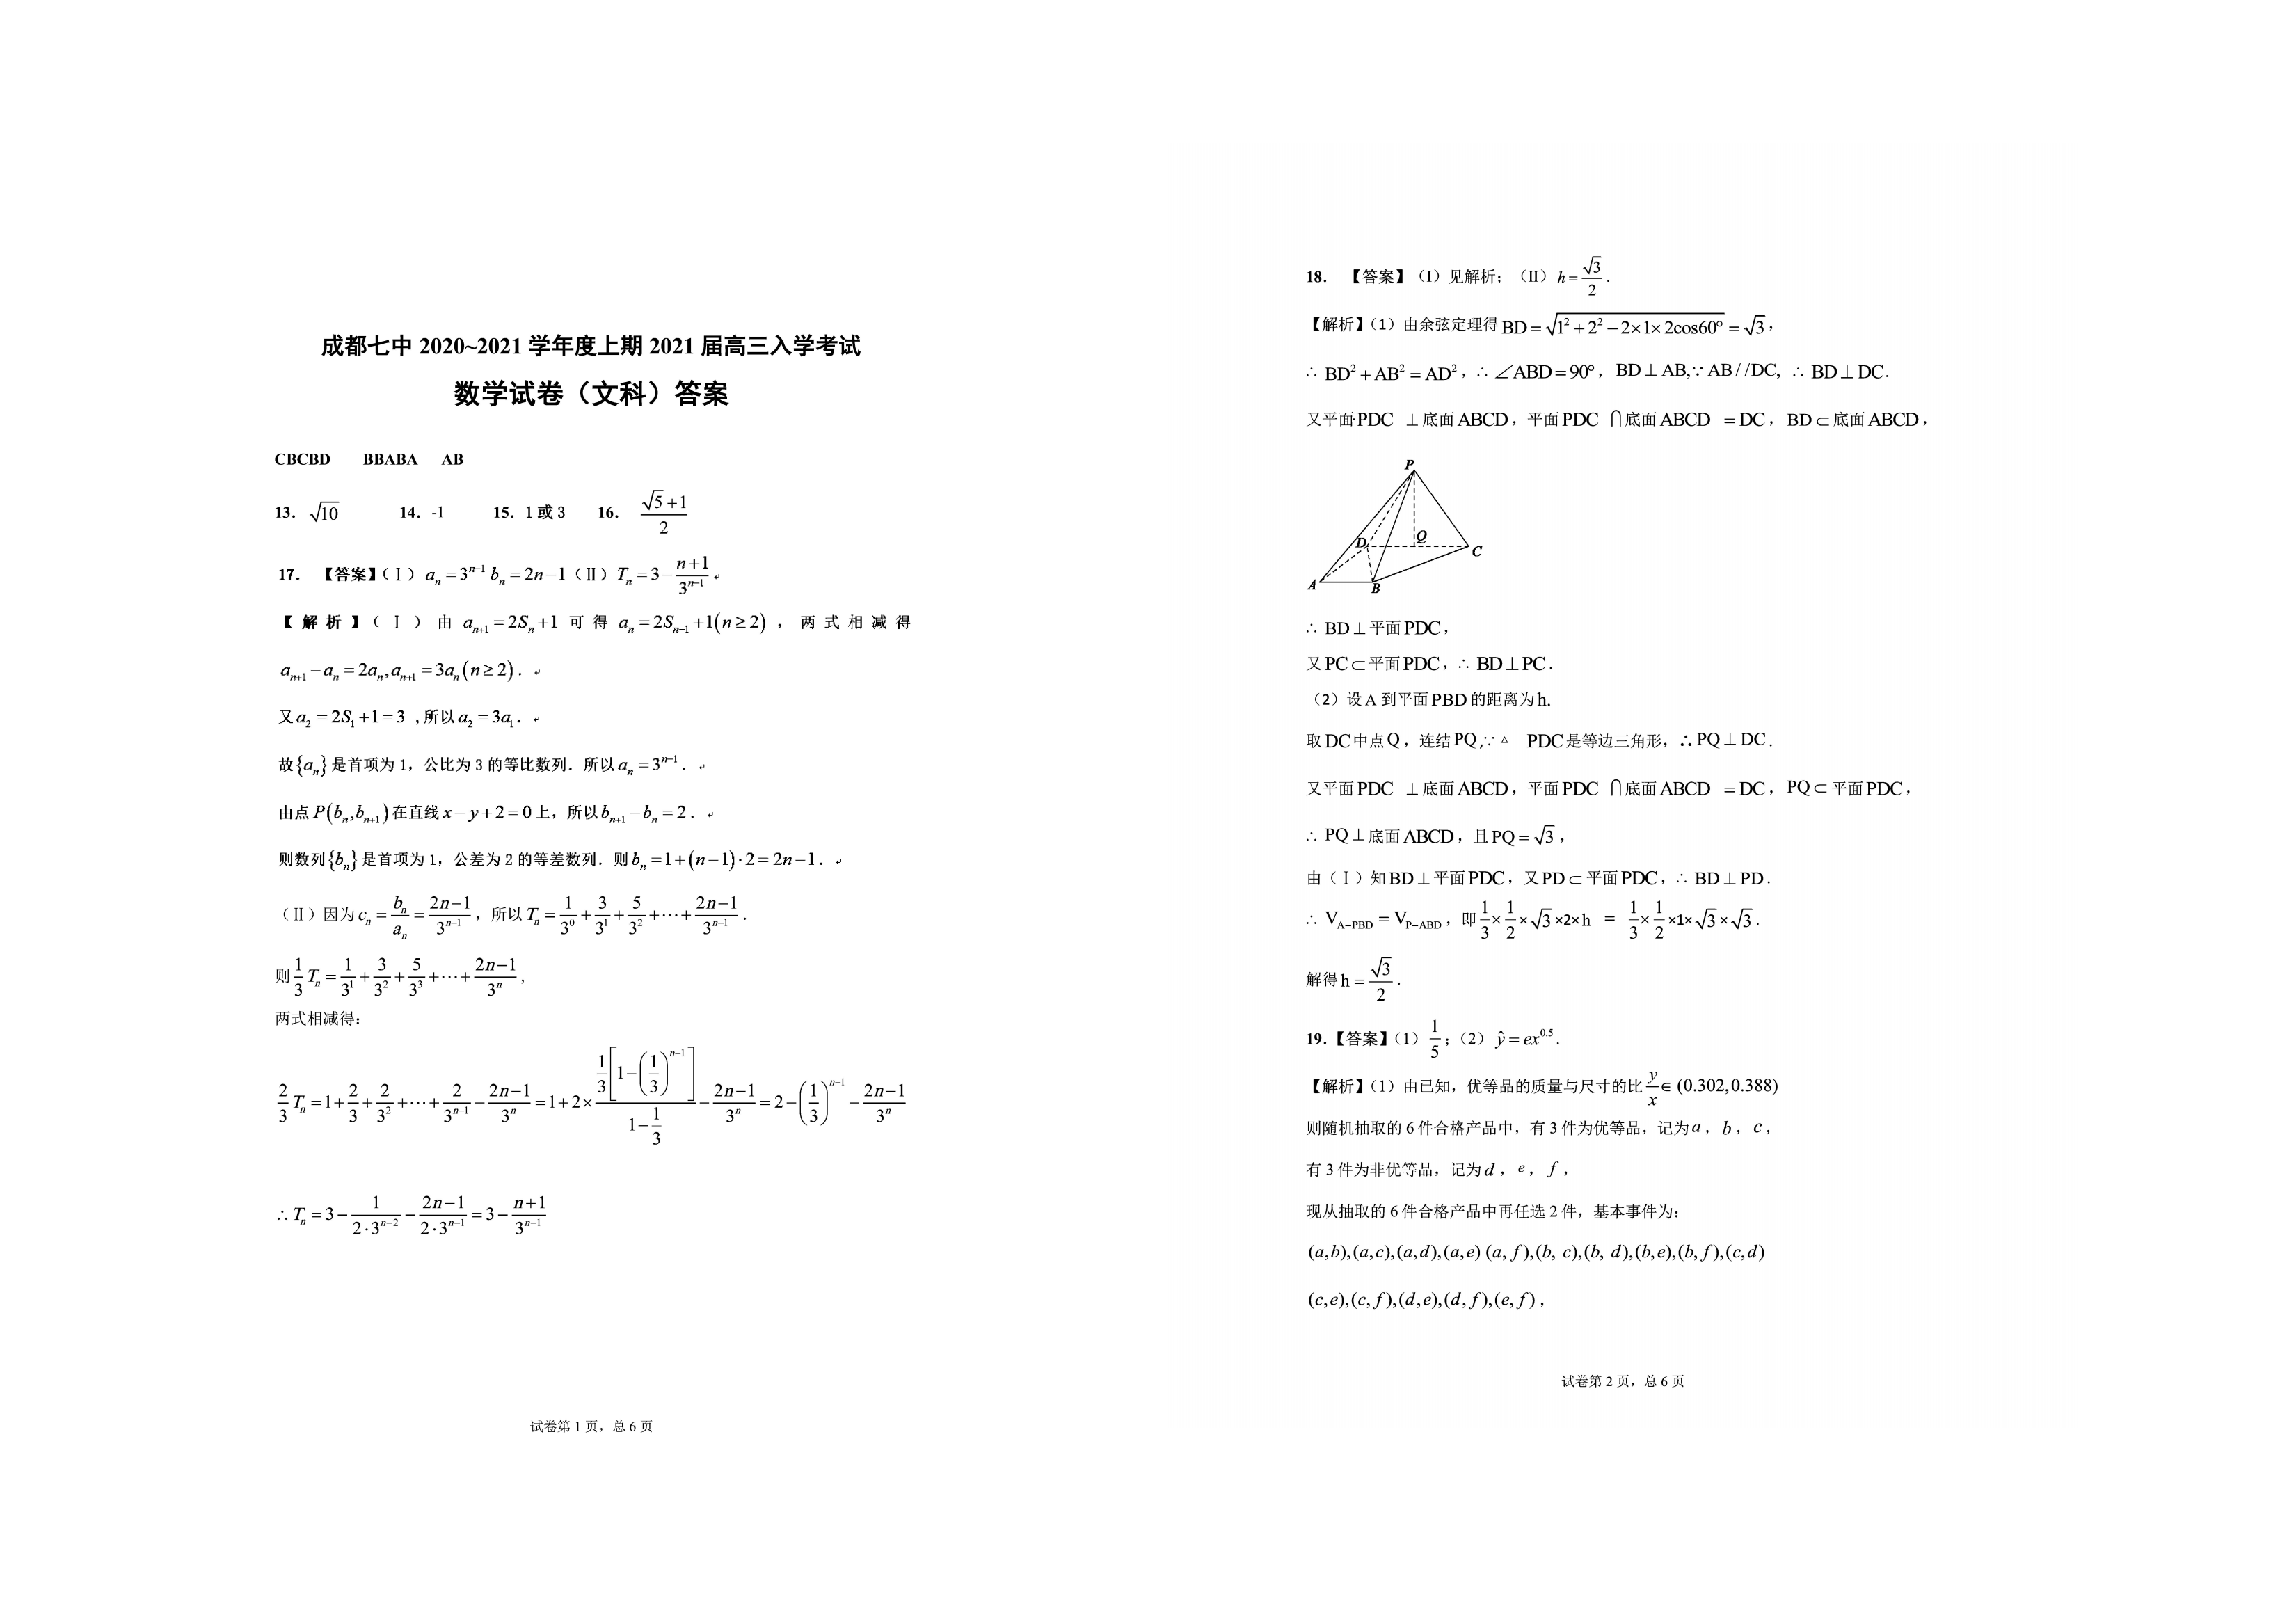 成都七中 2020~2021 学年度上期 2021 届高三入学考试
数学试卷（文科）答案
CBCBD BBABA AB
13. √10 14. -1 15. 1 或 3 16. (√5+1)/2
17. 【答案】(Ⅰ) a_n=3^{n-1} b_n=2n-1 (Ⅱ) T_n=3-(n+1)/3^{n-1}
【解析】(Ⅰ) 由 a_{n+1}=2S_n+1 可得 a_n=2S_{n-1}+1(n≥2)，两式相减得
a_{n+1}-a_n=2a_n,a_{n+1}=3a_n(n≥2).
又a_2=2S_1+1=3 ,所以a_2=3a_1.
故{a_n}是首项为 1，公比为 3 的等比数列. 所以a_n=3^{n-1}.
由点P(b_n,b_{n+1})在直线x-y+2=0上，所以b_{n+1}-b_n=2.
则数列{b_n}是首项为 1，公差为 2 的等差数列. 则b_n=1+(n-1)·2=2n-1.
(Ⅱ) 因为c_n=b_n/a_n=(2n-1)/3^{n-1}，所以T_n=1/3^0+3/3^1+5/3^2+⋯+(2n-1)/3^{n-1}.
则(1/3)T_n=1/3^1+3/3^2+5/3^3+⋯+(2n-1)/3^n,
两式相减得：
(2/3)T_n=1+2/3+2/3^2+⋯+2/3^{n-1}-(2n-1)/3^n=1+2×((1/3)[1-(1/3)^{n-1}])/(1-1/3)-(2n-1)/3^n=2-(1/3)^{n-1}-(2n-1)/3^n
∴T_n=3-1/(2·3^{n-2})-(2n-1)/(2·3^{n-1})=3-(n+1)/3^{n-1}
试卷第 1 页，总 6 页
18. 【答案】（I）见解析；（II）h=√3/2.
【解析】（1）由余弦定理得BD=√(1^2+2^2-2×1×2cos60°)=√3，
∴ BD^2+AB^2=AD^2，∴ ∠ABD=90°，BD⊥AB,∵AB//DC, ∴ BD⊥DC.
又平面PDC ⊥底面ABCD，平面PDC ∩底面ABCD =DC，BD⊂底面ABCD，
P
D
Q
C
A
B
∴ BD⊥平面PDC，
又PC⊂平面PDC，∴ BD⊥PC.
（2）设A 到平面PBD 的距离为h.
取DC中点Q，连结PQ,∵△ PDC是等边三角形，∴PQ⊥DC.
又平面PDC ⊥底面ABCD，平面PDC ∩底面ABCD =DC，PQ⊂平面PDC，
∴ PQ⊥底面ABCD，且PQ=√3，
由（Ⅰ）知BD⊥平面PDC，又PD⊂平面PDC，∴ BD⊥PD.
∴ V_{A-PBD}=V_{P-ABD}，即1/3×1/2×√3×2×h = 1/3×1/2×1×√3×√3.
解得h=√3/2.
19.【答案】（1）1/5；（2）ŷ=ex^{0.5}.
【解析】（1）由已知，优等品的质量与尺寸的比y/x∈(0.302,0.388)
则随机抽取的 6 件合格产品中，有 3 件为优等品，记为a，b，c，
有 3 件为非优等品，记为d，e，f，
现从抽取的 6 件合格产品中再任选 2 件，基本事件为：
(a,b),(a,c),(a,d),(a,e) (a, f),(b, c),(b, d),(b,e),(b, f),(c,d)
(c,e),(c, f),(d,e),(d, f),(e, f)，
试卷第 2 页，总 6 页